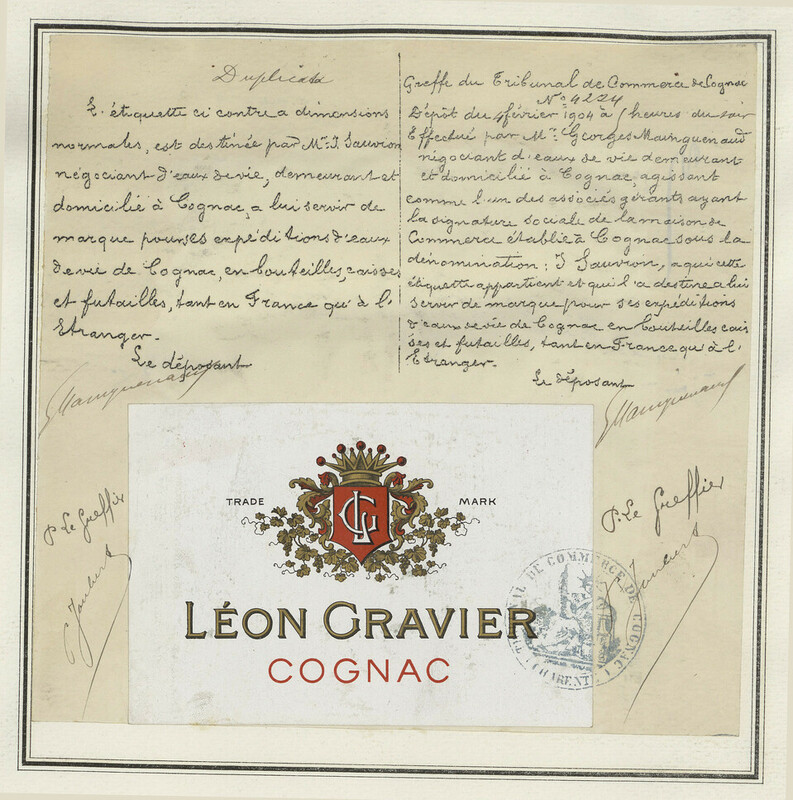 Duplicata
L'étiquette ci contre a dimensions
normales, est destinée par Mr. J. Sauvron
négociant d'eaux de vie, demeurant et
domicilié à Cognac, a lui servir de
marque pour ses expéditions d'eaux
de vie de Cognac, en bouteilles, caisses
et futailles, tant en France qu'à l'
Etranger.
Le déposant
GMainguenaud
P. Le Greffier
Joubert
Greffe du Tribunal de Commerce de Cognac
No. 4224
Dépôt du 4 février 1904 à 1 heures du soir
Effectué par Mr. Georges Mainguenaud
négociant d'eaux de vie demeurant
et domicilié à Cognac, agissant
comme l'un des associés gérants ayant
la signature sociale de la maison de
Commerce établie à Cognac sous la
dénomination : J Sauvron, a qui cette
étiquette appartient et qu'il a destine a lui
servir de marque pour ses expéditions
d'eaux de vie de Cognac en bouteilles cais
ses et futailles, tant en France qu'à l'
Etranger.
Le déposant
GMainguenaud
P. Le Greffier
Joubert
TRADE MARK
LG
LÉON GRAVIER
COGNAC
TRIBUNAL DE COMMERCE DE COGNAC
(CHARENTE)